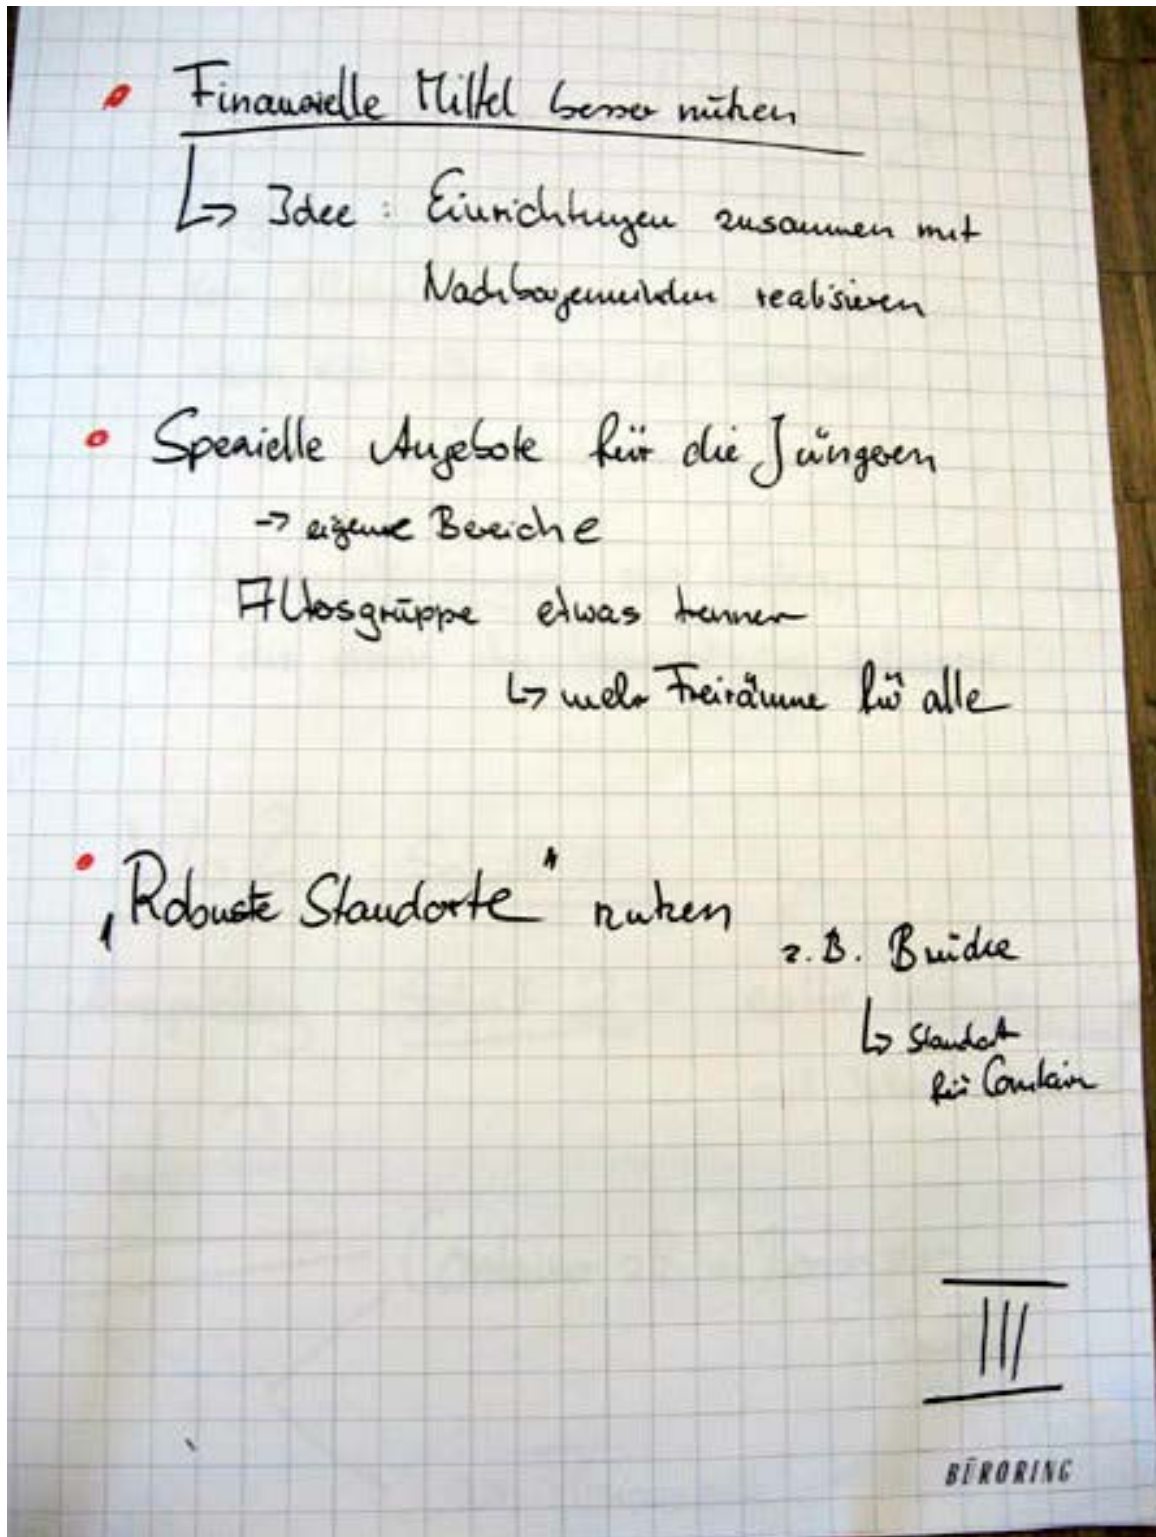 • Finanzielle Mittel besser nützen
↳ Idee : Einrichtungen zusammen mit
Nachbargemeinden realisieren
• Spezielle Angebote für die Jüngeren
→ eigene Bereiche
Altersgruppe etwas trennen
↳ mehr Freiräume für alle
• „Robuste Standorte" nutzen
z.B. Brücke
↳ Standort
für Container
III
BÜRORING